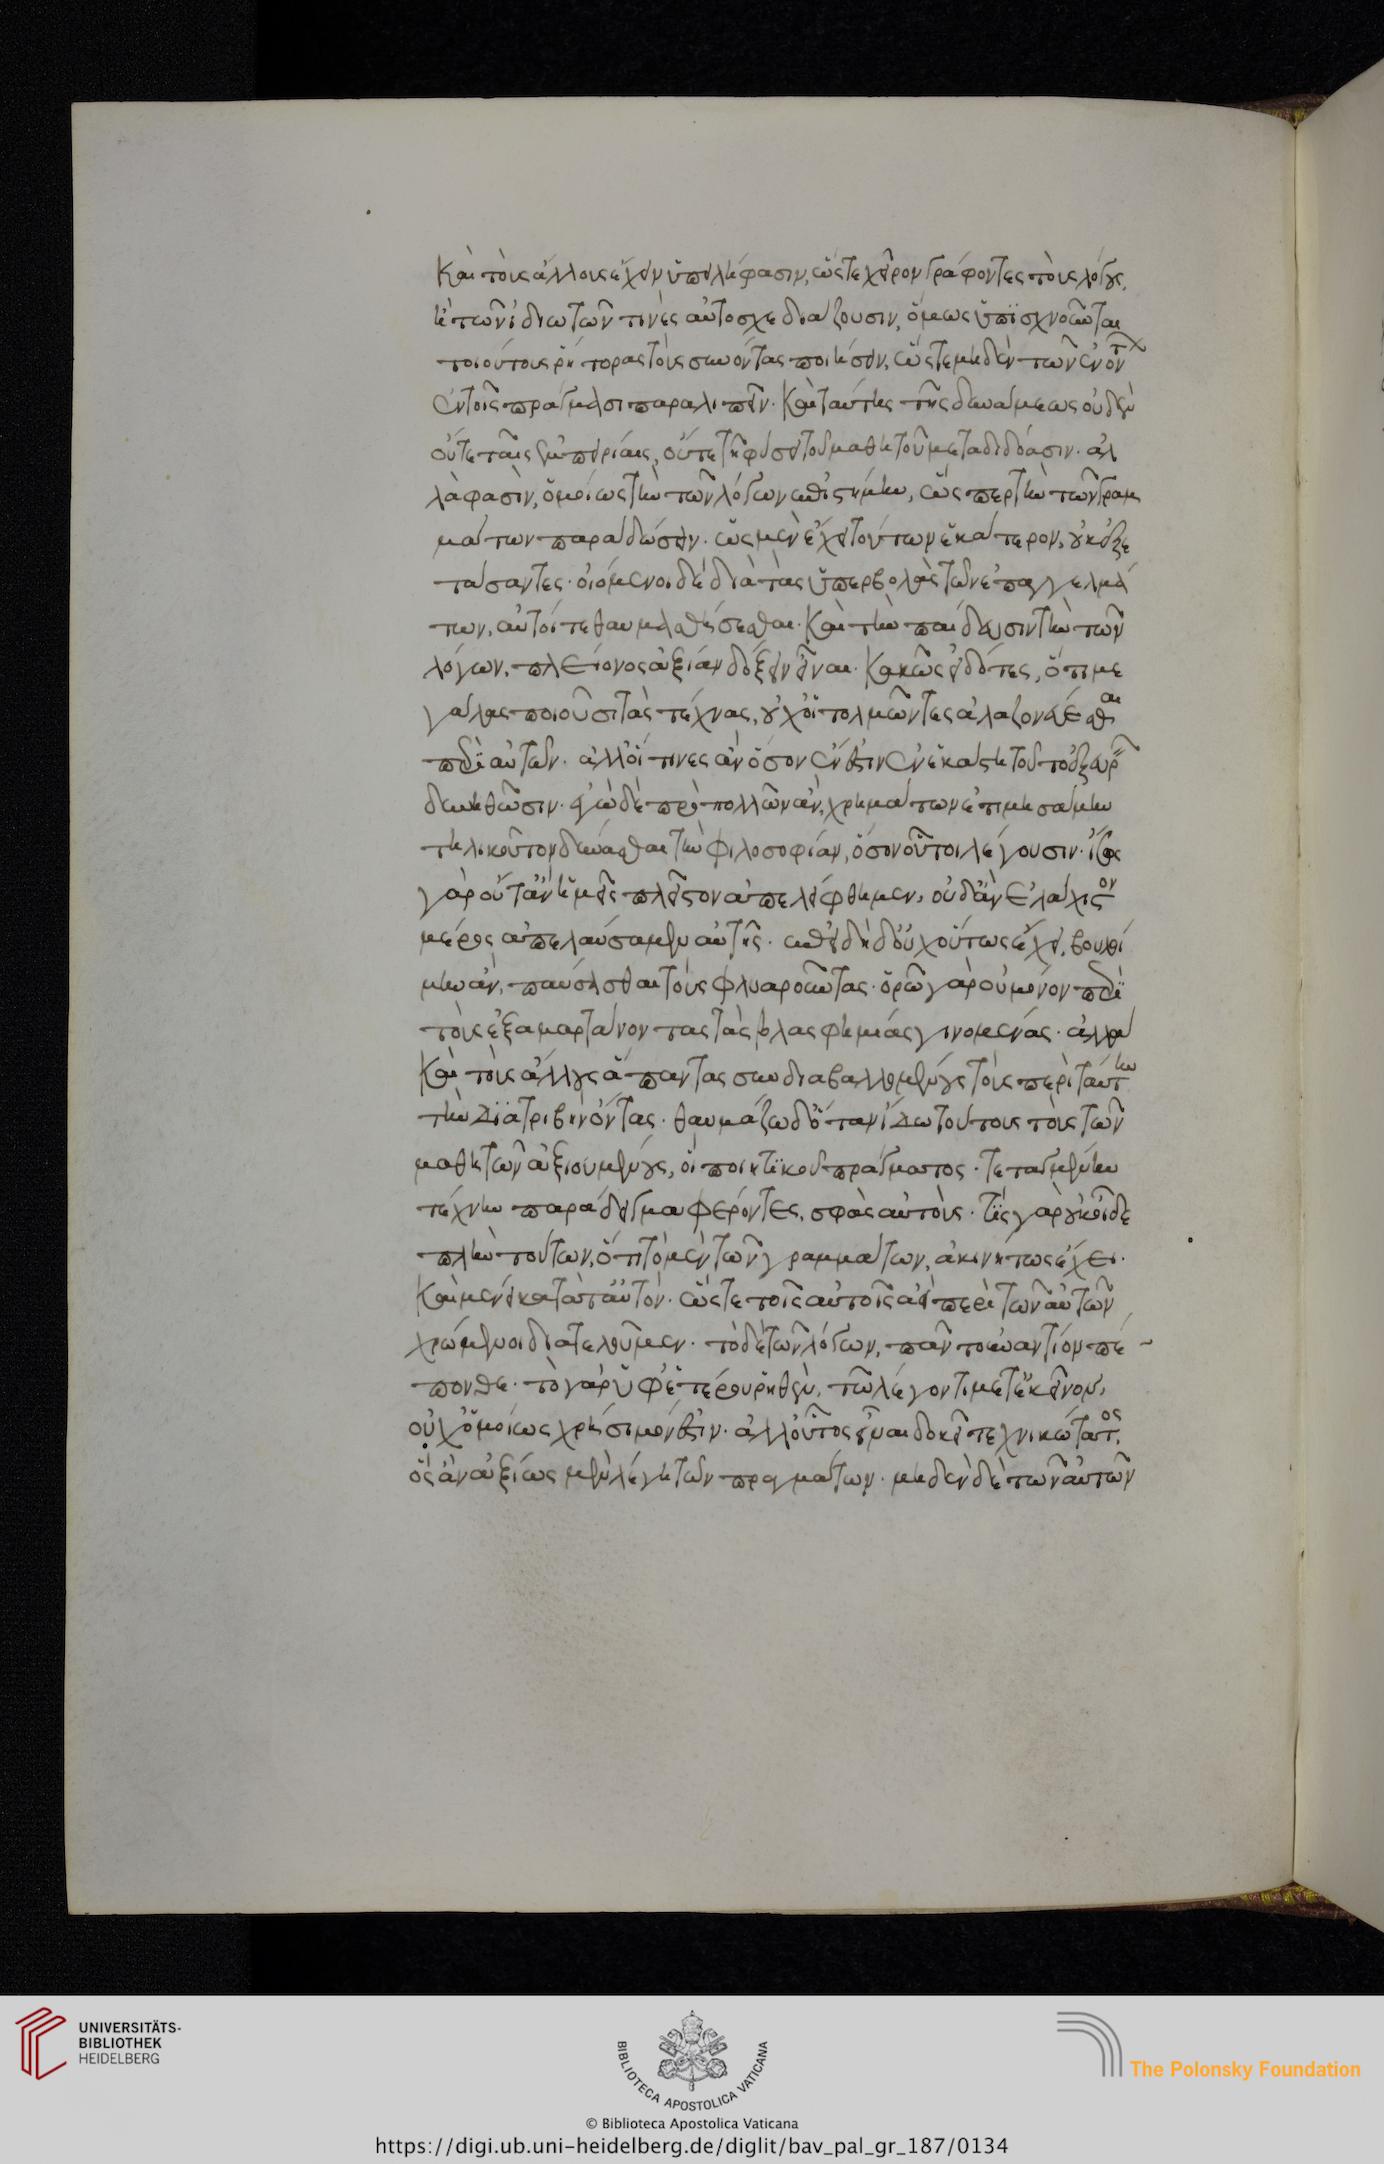 Καὶ τοὺς ἄλλους ἔχειν ὑπειλήφασιν, ὥστε χεῖρον γράφοντες τοὺς λόγους,
ἢ τῶν ἰδιωτῶν τινὲς αὐτοσχεδιάζουσιν, ὅμως ὑπισχνοῦνται
τοιούτους ῥήτορας τοὺς συνόντας ποιήσειν, ὥστε μηδὲν τῶν ἐνόντων
ἐν τοῖς πράγμασι παραλιπεῖν. Καὶ ταύτης τῆς δυνάμεως οὐδὲν
οὔτε ταῖς ἐμπειρίαις, οὔτε τῇ φύσει τοῦ μαθητοῦ μεταδιδόασιν. ἀλ
λὰ φασὶν, ὁμοίως τὴν τῶν λόγων ἐπιστήμην, ὥσπερ τὴν τῶν γραμ
μάτων παραδώσειν. ὡς μὲν ἔχει τούτων ἑκάτερον, οὐκ ἐξε
τάσαντες. οἰόμενοι δὲ διὰ τὰς ὑπερβολὰς τῶν ἐπαγγελμά
των, αὐτοί τε θαυμασθήσεσθαι. Καὶ τὴν παίδευσιν τὴν τῶν
λόγων, πλείονος ἀξίαν δόξειν εἶναι. Κακῶς εἰδότες, ὅτι με
γάλας ποιοῦσι τὰς τέχνας, οὐχ οἱ τολμῶντες ἀλαζονεύεσθαι
περὶ αὐτῶν. ἀλλ' οἵ τινες ἂν ὅσον ἔνεστιν ἐν ἑκάστῃ τοῦτο ἐξευρεῖν
δυνηθῶσιν. ἐγὼ δὲ πρὸ πολλῶν ἂν, χρημάτων ἐτιμησάμην
τηλικοῦτον δύνασθαι τὴν φιλοσοφίαν, ὅσον οὗτοι λέγουσιν. ἴσως
γὰρ οὔτ' ἂν ἡμεῖς πλεῖστον ἀπελείφθημεν, οὐδ' ἂν ἐλάχιστον
μέρος ἀπελαύσαμεν αὐτῆς. ἐπειδὴ δ' οὐχ οὕτως ἔχει, βουλοί
μην ἂν, παύσασθαι τοὺς φλυαροῦντας. ὁρῶ γὰρ οὐ μόνον περὶ
τοὺς ἐξαμαρτάνοντας τὰς βλασφημίας γινομένας. ἀλλὰ
Καὶ τοὺς ἄλλους ἅπαντας συνδιαβαλλομένους τοὺς περὶ ταύτην
τὴν διατριβὴν ὄντας. θαυμάζω δ' ὅταν ἴδω τούτους τοὺς τῶν
μαθητῶν ἀξιουμένους, οἳ ποιητικοῦ πράγματος. τεταγμένην
τέχνην παράδειγμα φέροντες, σφᾶς αὐτούς. τίς γὰρ οὐκ οἶδε
πλὴν τούτων, ὅτι τὸ μὲν τῶν γραμμάτων, ἀκινήτως ἔχει.
Καὶ μένει κατὰ ταὐτόν. ὥστε τοῖς αὐτοῖς ἀεὶ περὶ τῶν αὐτῶν
χρώμενοι διατελοῦμεν. τὸ δὲ τῶν λόγων, πᾶν τοὐναντίον πέ
πονθε. τὸ γὰρ ὑφ' ἑτέρου ῥηθὲν, τῷ λέγοντι μετ' ἐκεῖνον,
οὐχ ὁμοίως χρήσιμόν ἐστιν. ἀλλ' οὗτος εἶναι δοκεῖ τεχνικώτατος,
ὃς ἂν ἀξίως μὲν λέγῃ τῶν πραγμάτων. μηδὲν δὲ τῶν αὐτῶν
UNIVERSITÄTS-
BIBLIOTHEK
HEIDELBERG
BIBLIOTECA APOSTOLICA VATICANA
The Polonsky Foundation
© Biblioteca Apostolica Vaticana
https://digi.ub.uni-heidelberg.de/diglit/bav_pal_gr_187/0134